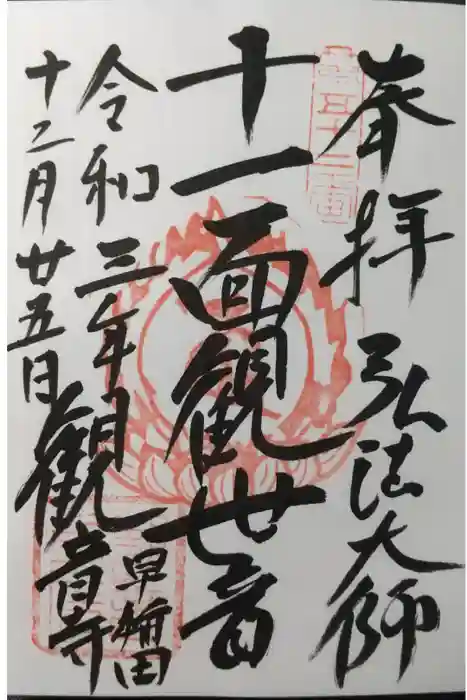 奉拝 弘法大師
十一面観世音
令和三年
十二月廿五日
観音寺